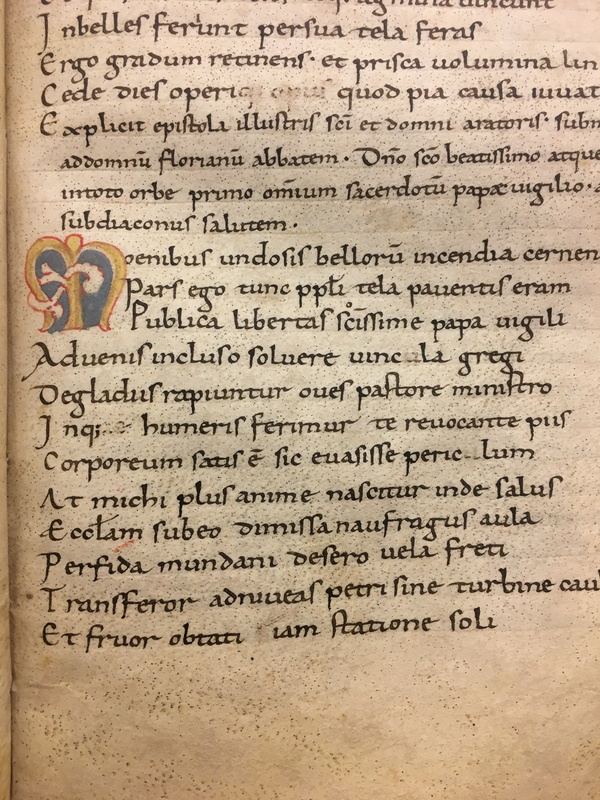 Inbelles ferunt persua tela feras
Ergo gradum retinens · et prisca volumina lin
Cede dies operi quod pia causa iuuat
Explicit epistola illustris sci et domni aratoris · subm
addomnū florianū abbatem · Dn̄o sc̄o beatissimo atque
intoto orbe primo omīum sacerdotū papæ uigilio ·
subdiaconus salutem ·
Moenibus undosis bellorū incendia cernen
Pars ego tunc ppłi tela pauentis eram
Publica libertas sc̄issime papa uigili
Aduenis incluso soluere uinc la gregi
Degladiis rapiuntur oues pastore ministro
Inq; humeris ferimur te reuocante piis
Corporeum satis ē sic euasisse peric lum
At michi plus anime nascitur inde salus
Eccłam subeo dimissa naufragus aula
Perfida mundani desero uela freti
Transferor adniueas petri sine turbine cau
Et fruor obtati iam statione soli